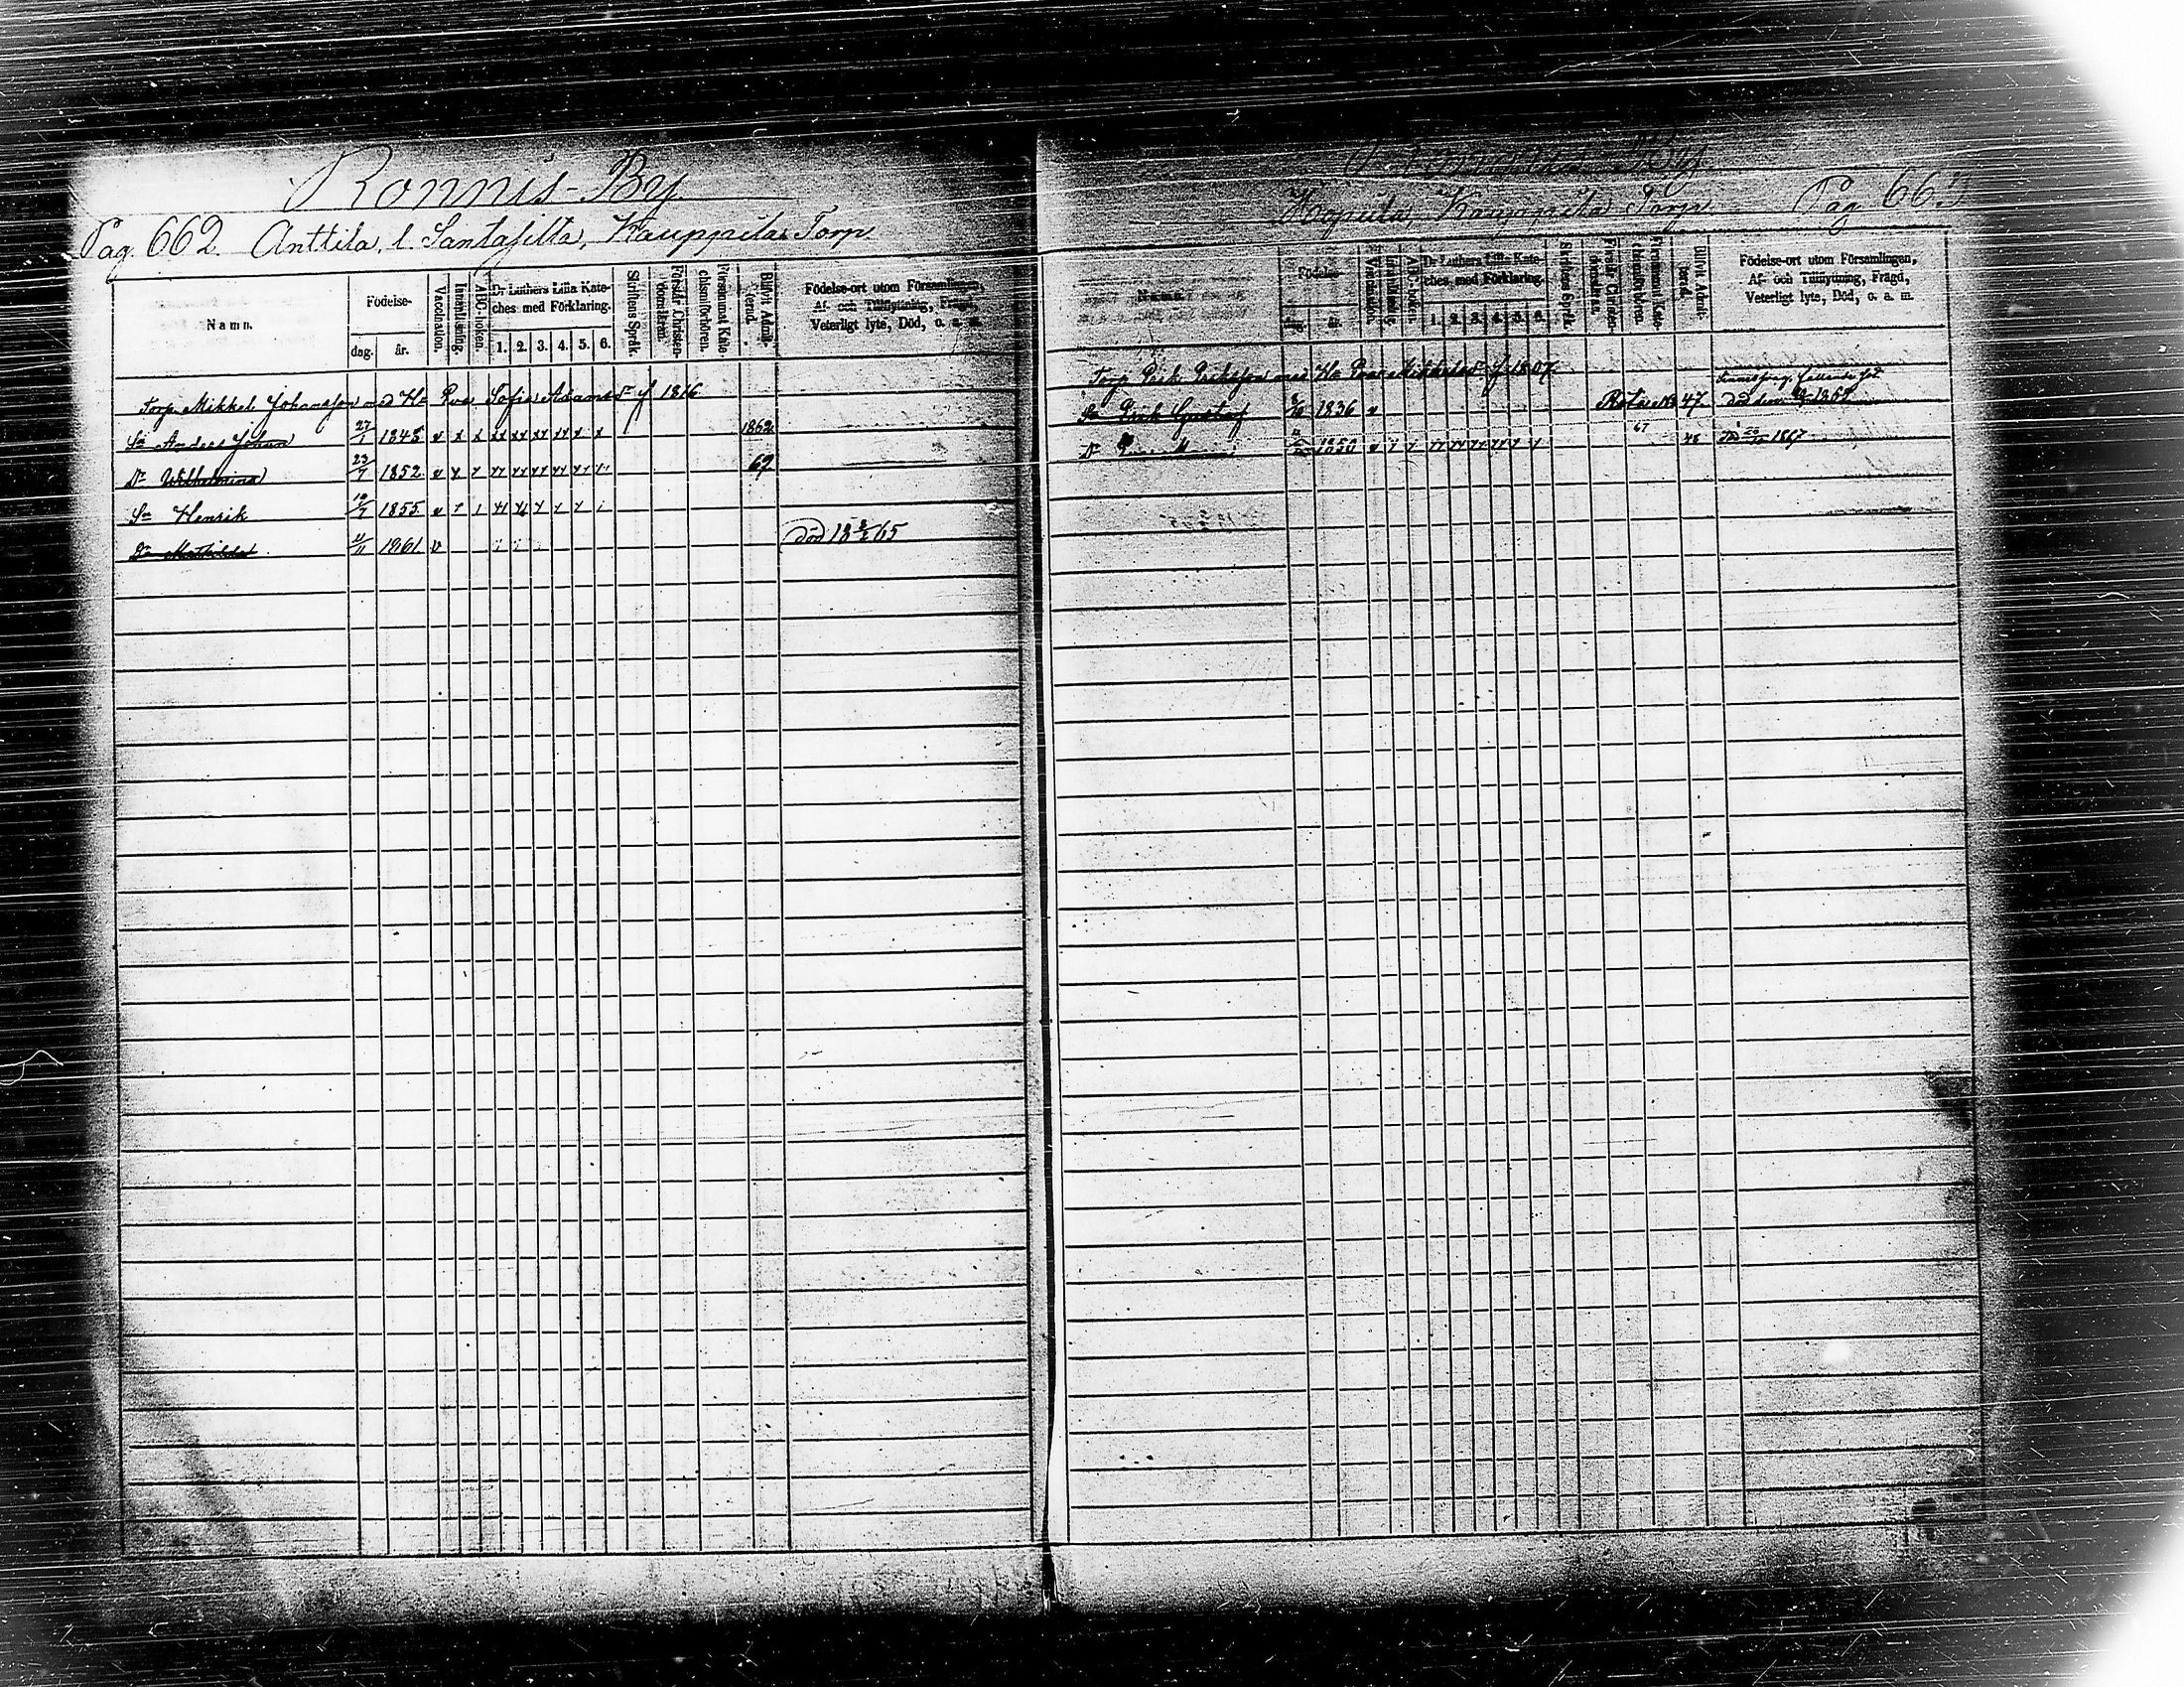 Ronnis-By.
Pag. 662. Anttila, l. Santasilta, Kauppila Torp
Namn.
Födelse-
dag. år.
Vaccination.
Innanläsning.
ABC-boken.
Dr Luthers Lilla Kate-
ches med Förklaring.
1. 2. 3. 4. 5. 6.
Skriftens Språk.
Förstår Christen-
domsläran.
Försummat Kate-
chismiförhören.
Blifvit Admit-
terad.
Födelse-ort utom Församlingen,
Af- och Tillflyttning, Frägd,
Veterligt lyte, Död, o. a. m.
Torp. Mikkel Johansson med H. Sofia Adams 1816
Sn Anders Johan 27/1 1845 1862
Dr Wilhelmina 23/7 1852 69
Sn Henrik 1855
Dr Mathilda 1861 död 65
By
Kauppila Torp Pag 663
Namn.
Födelse-
dag. år.
Vaccination.
Innanläsning.
ABC-boken.
Dr Luthers Lilla Kate-
ches med Förklaring.
1. 2. 3. 4. 5. 6.
Skriftens Språk.
Förstår Christen-
domsläran.
Försummat Kate-
chismiförhören.
Blifvit Admit-
terad.
Födelse-ort utom Församlingen,
Af- och Tillflyttning, Frägd,
Veterligt lyte, Död, o. a. m.
Torp. Erik Eriksson med 1807
Sn Erik Gustaf 1836 47
67
Dr 1850 1867